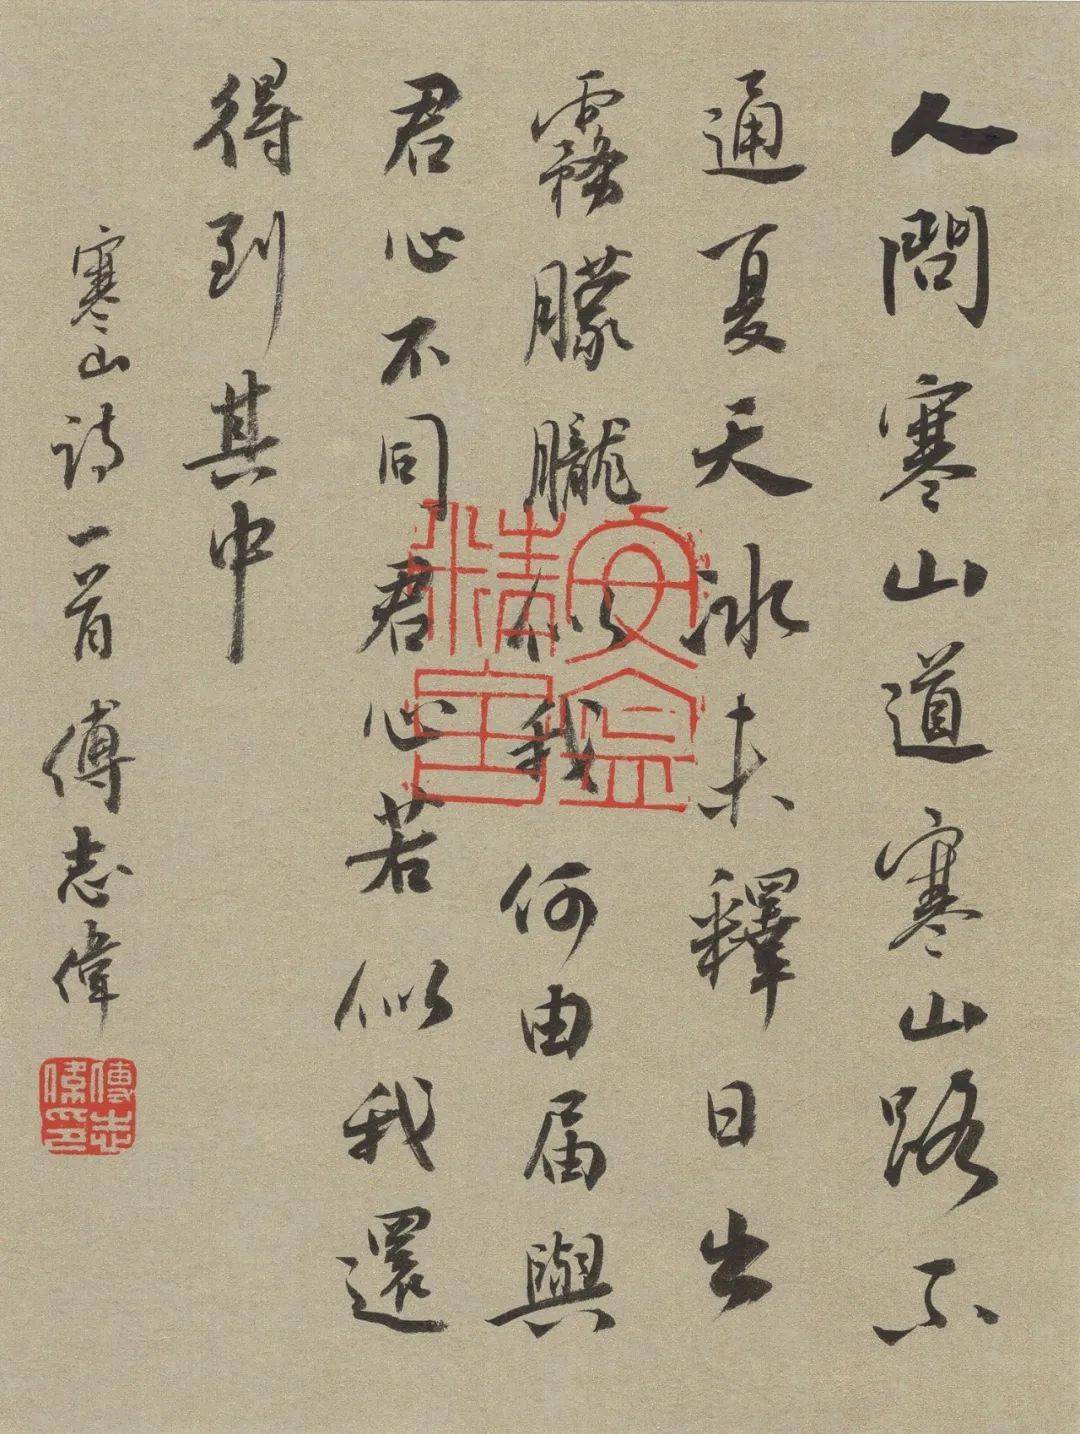 人問寒山道寒山路不
通夏天冰未釋日出
霧朦朧似我何由届與
君心不同君心若似我還
得到其中
寒山詩一首 傅志偉
傅志偉印
精舍